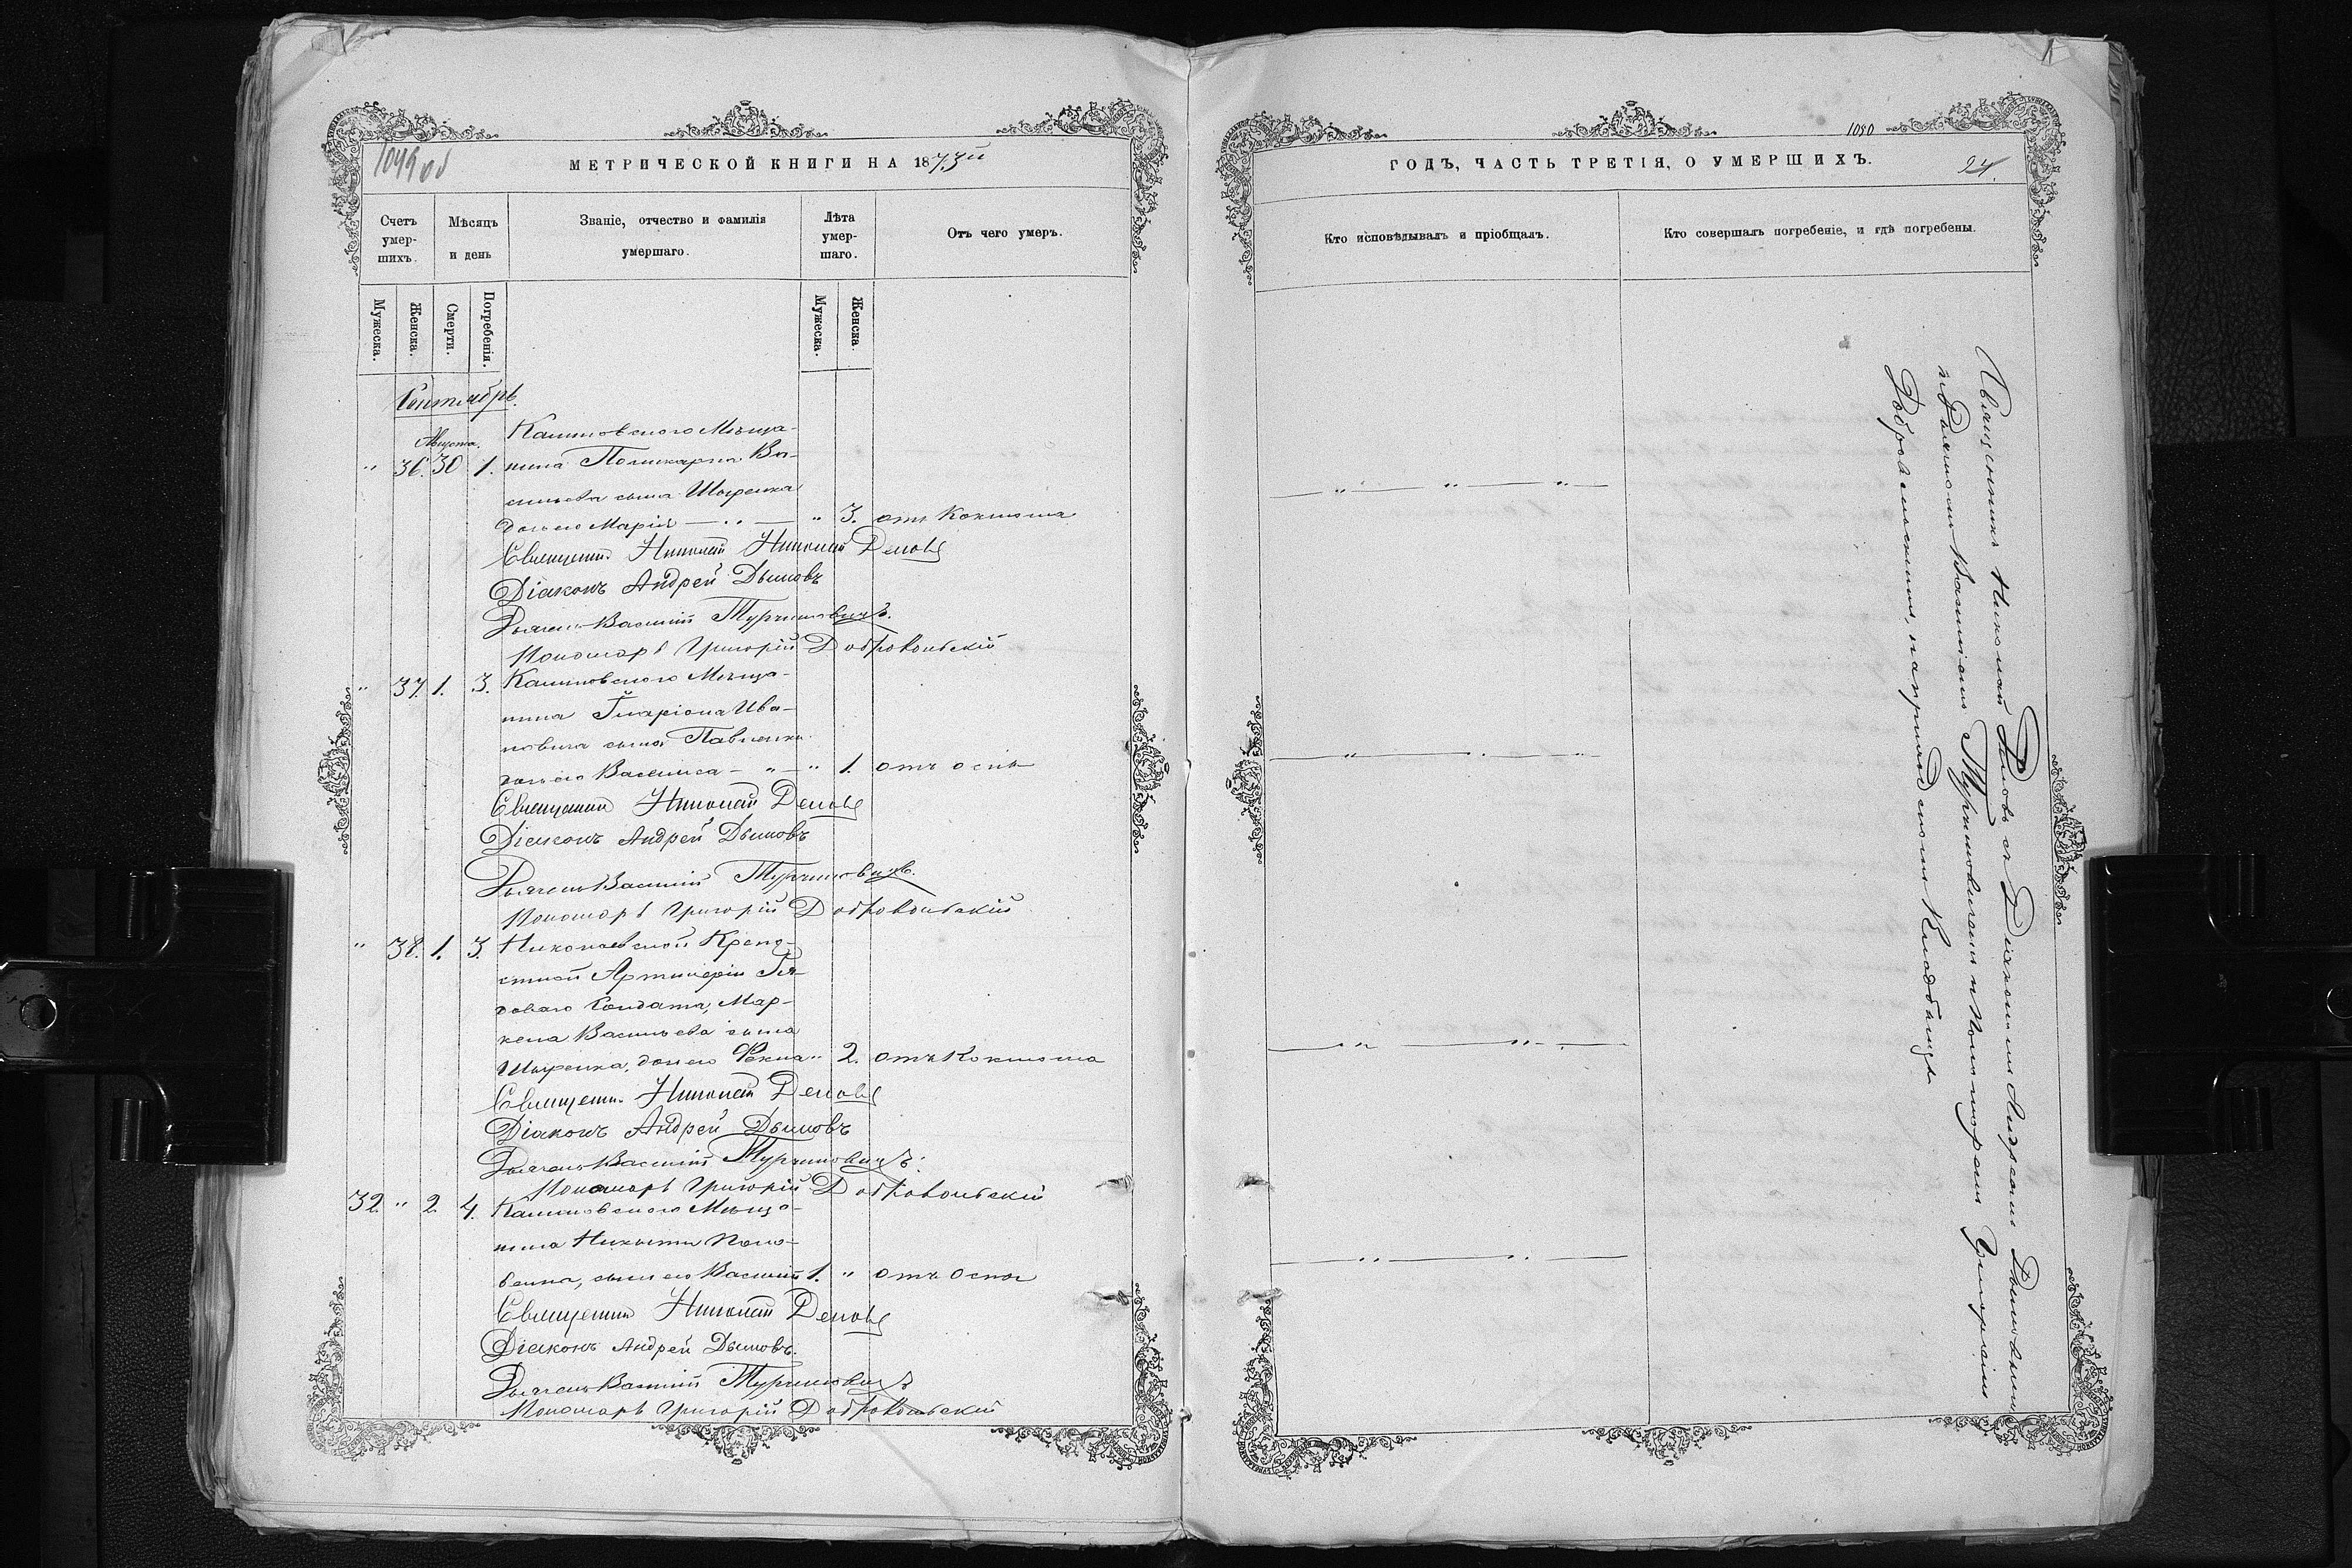 1049 об
МЕТРИЧЕСКОЙ КНИГИ НА 1873й
Счетъ умерших.
Мѣсяцъ и день
Званіе, отчество и фамилія умершаго.
Лѣта умершаго.
Отъ чего умеръ.
Мужеска.
Женска.
Смерти.
Погребенія.
Мужеска.
Женска.
Сентябрь.
Августа.
Калиновского Мѣща-
" 36. 30 1. нина Поликарпа Ва-
сильева сына Шыренка
дочь его Марія — " — " 3. отъ Коклюша
Священник Николай Николай Деповъ
Діаконъ Андрей Дымовъ
Дьячекъ Василій Турчиновичъ.
Пономарь Григорій Добровольскій
" 37. 1. 3. Калиновского Мѣща-
нина Іларіона Ива-
новича сына Павленки
дочь его Василиса — " — " 1. отъ оспы
Священник Николай Деповъ
Діаконъ Андрей Дымовъ
Дьячекъ Василій Турчиновичъ.
Пономарь Григорій Добровольскій
" 38. 1. 3. Николаевской Крепо-
стной Артилеріи Ря-
доваго Солдата, Мар-
кела Васильева сына
Шыренка, дочь его Фекла " 2. отъ Коклюша
Священ. Николай Деповъ
Діаконъ Андрей Дымовъ
Дьячекъ Василій Турчиновичъ.
Пономарь Григорій Добровольскій
32. " 2. 4. Калиновского Мѣща-
нина Никиты Поло-
венка, сынъ его Василій 1. " отъ Оспы
Священник Николай Деповъ
Діаконъ Андрей Дымовъ.
Дьячекъ Василій Турчиновичъ
Пономарь Григорій Добровольскій
1050
ГОДЪ, ЧАСТЬ ТРЕТІЯ, О УМЕРШИХЪ.
24.
Кто исповѣдывалъ и пріобщалъ.
Кто совершалъ погребеніе, и гдѣ погребены.
— " — " — " —
— " — " — " —
— " — " —
— " — " —
Священникъ Николай Деповъ съ Діакономъ Андреемъ Дымовымъ
и Дьячкомъ Василіемъ Турчиновичемъ и Пономоремъ Григоріемъ
Добровольскимъ, на приходскомъ Кладбищѣ